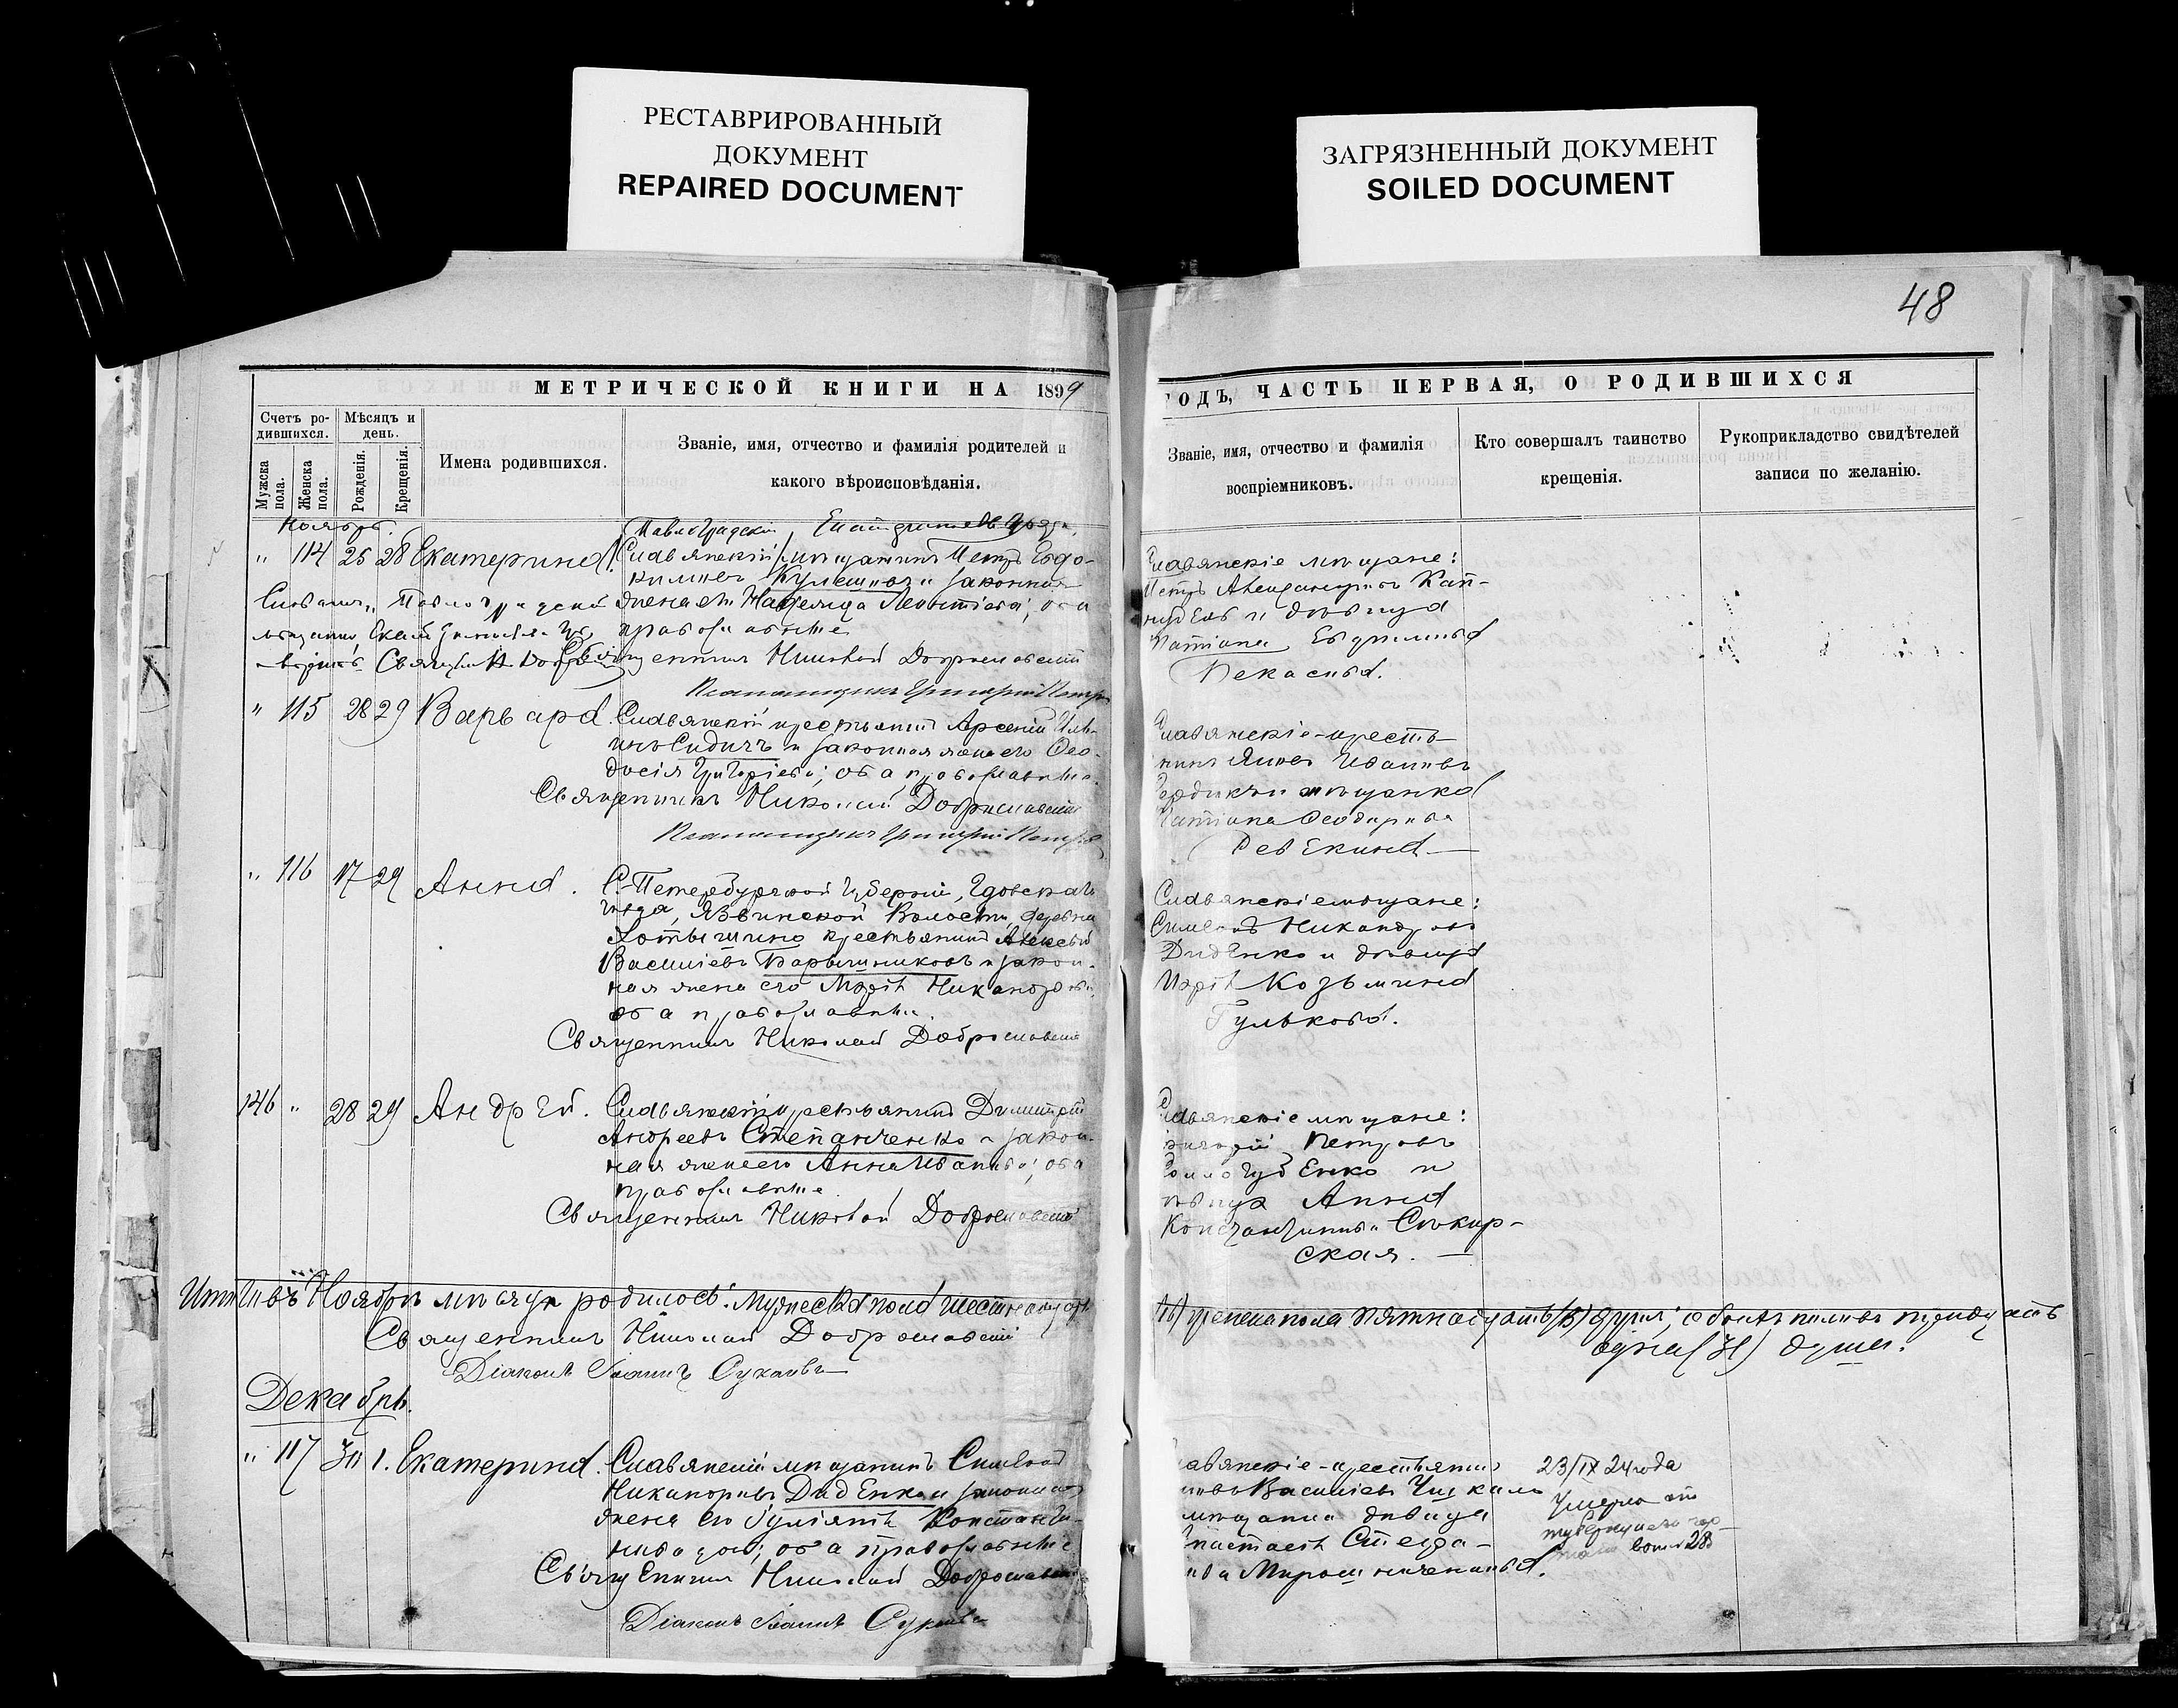 РЕСТАВРИРОВАННЫЙ
ДОКУМЕНТ
REPAIRED DOCUMENT
ЗАГРЯЗНЕННЫЙ ДОКУМЕНТ
SOILED DOCUMENT
48
МЕТРИЧЕСКОЙ КНИГИ НА 1899
Счетъ ро-
дившихся.
Мѣсяцъ и
день.
Мужска
пола.
Женска
пола.
Рожденія.
Крещенія.
Имена родившихся.
Званіе, имя, отчество и фамилія родителей и
какого вѣроисповѣданія.
Ноябрь
" 114 25 28 Екатерина.
Славянскій мѣщанинъ Петръ Евдо-
кимовъ Кулешовъ и законная
жена его Надежда Леонтіева, оба
православные
Священникъ Николай Доброславскій
" 115 28 29 Варвара.
Славянскій крестьянинъ Арсеній Иль-
инъ Сидичъ и законная жена его Ѳео-
досія Григоріева; оба православные.
Священникъ Николай Доброславскій
" 116 17 29 Анна.
С.-Петербургской губерніи, Гдовскаго
уѣзда, Язвинской Волости, деревни
Хотыжино крестьянинъ Алексѣй
Василіевъ Барышниковъ и закон-
ная жена его Марія Никанорова
оба православные.
Священникъ Николай Доброславскій
146 " 28 29 Андрей.
Славянскій крестьянинъ Димитрій
Андреевъ Степанченко и закон-
ная жена его Анна Иванова; оба
православные
Священникъ Николай Доброславскій
Итого въ Ноябрѣ мѣсяцѣ родилось: Мужеска пола шестнадцать
Священникъ Николай Доброславскій
Діаконъ Іоаннъ Сукачевъ
Декабрь.
" 117 30 1. Екатерина.
Славянскій мѣщанинъ Симеонъ
Никаноровъ Диденко и законная
жена его Іулянія Константи-
нова; оба православные
Священникъ Николай Доброславскій
Діаконъ Іоаннъ
ГОДЪ, ЧАСТЬ ПЕРВАЯ, О РОДИВШИХСЯ
Званіе, имя, отчество и фамилія
воспріемниковъ.
Кто совершалъ таинство
крещенія.
Рукоприкладство свидѣтелей
записи по желанію.
Славянскіе мѣщане:
Петръ Александровъ Кап-
и дѣвица
Татіана
Пекасина.
Славянскіе-кресть-
янинъ Яковъ Ивановъ
и мѣщанка
Татіана Ѳеодорова
Ревекина
Славянскіе мѣщане:
Симеонъ Никаноровъ
Диденко и дѣвица
Марія Козьмина
Гулькова.
Славянскіе мѣщане:
Григорій Петровъ
и
дѣвица Анна
Константинова Сѣкир-
ская.
(16) женска пола пятнадцать (15) душъ; обоего пола тридцать
одна (31) душа.
Славянскіе-крестьянинъ
Василіевъ
мѣщанка дѣвица
Анастасія Стефа-
нова Мирошниченкова.
23/IX 24 года
Умерла от